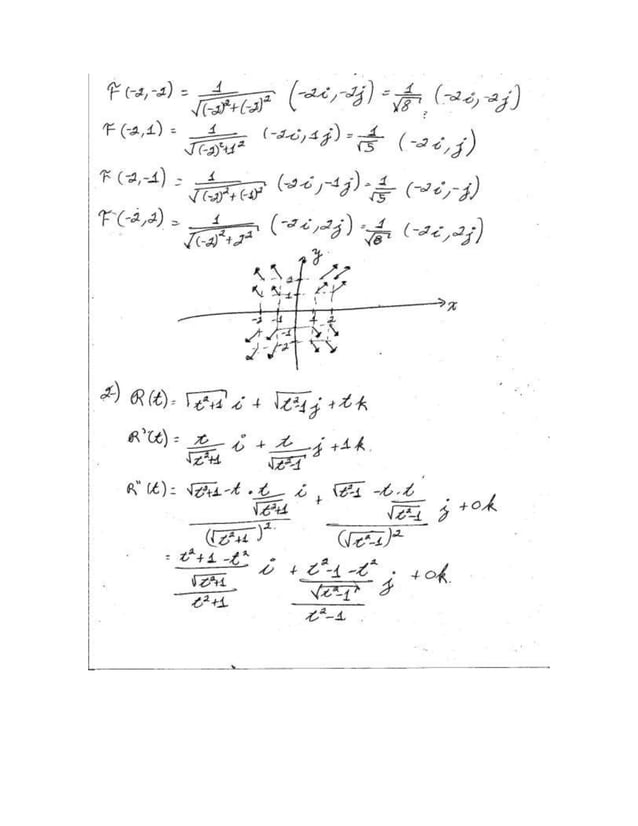 F(-2,-2) = 1/√((-2)²+(-2)²) (-2i,-2j) = 1/√8 (-2i,-2j)
F(-2,1) = 1/√((-2)²+1²) (-2i,1j) = 1/√5 (-2i,j)
F(-2,-1) = 1/√((-2)²+(-1)²) (-2i,-1j) = 1/√5 (-2i,-j)
F(-2,2) = 1/√((-2)²+2²) (-2i,2j) = 1/√8 (-2i,2j)
y
2
1
x
-2 -1 1 2
-1
-2
2) R(t) = √(t²+1) i + √(t²-1) j + tk
R'(t) = t/√(t²+1) i + t/√(t²-1) j + 1k.
R''(t) = (√(t²+1) - t · t/√(t²+1))/(√(t²+1))² i + (√(t²-1) - t.t/√(t²-1))/(√(t²-1))² j + 0k
= ((t²+1-t²)/√(t²+1))/(t²+1) i + ((t²-1-t²)/√(t²-1))/(t²-1) j + 0k.